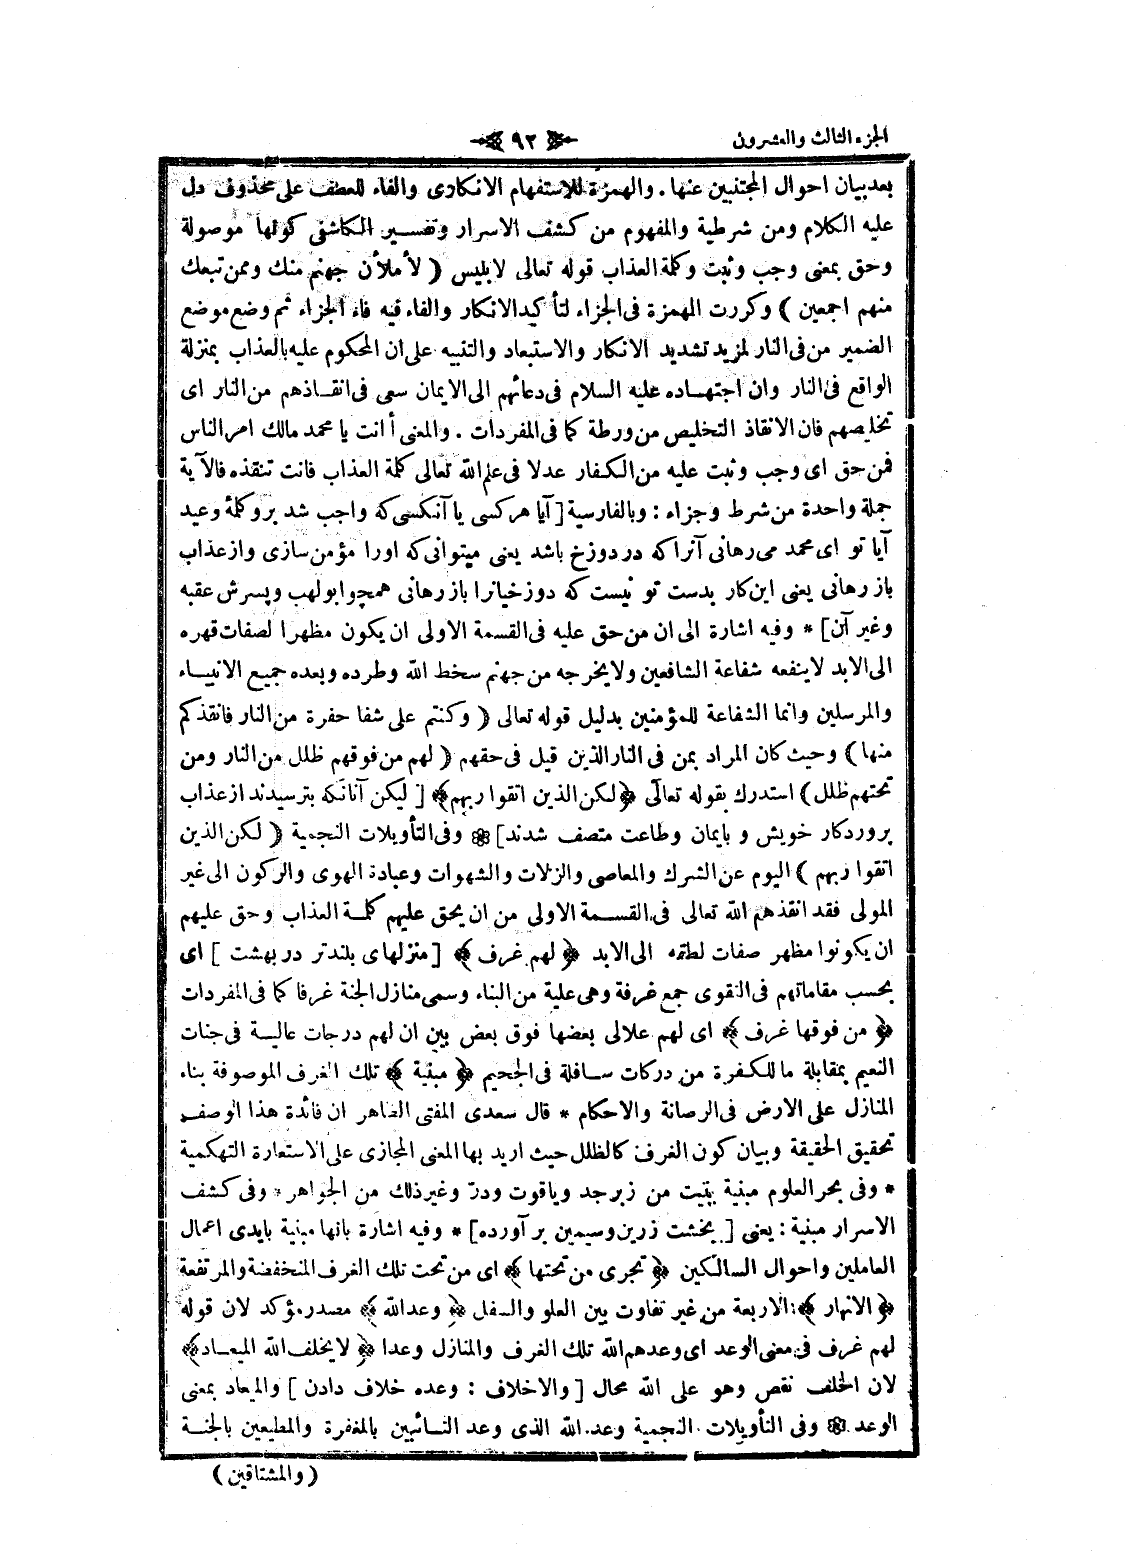 الجزء الثالث والعشرون
٩٢
بعد بيان احوال المجتنبين عنها . والهمزة للاستفهام الانكارى والفاء للعطف على محذوف دل
عليه الكلام ومن شرطية والمفهوم من كشف الاسرار وتفسير الكاشفى كونها موصولة
وحق بمعنى وجب وثبت وكلمة العذاب قوله تعالى لابليس ( لأملأن جهنم منك وممن تبعك
منهم اجمعين ) وكررت الهمزة فى الجزاء لتأكيد الانكار والفاء فيه فاء الجزاء ثم وضع موضع
الضمير من فى النار لمزيد تشديد الانكار والاستبعاد والتنبيه على ان المحكوم عليه بالعذاب بمنزلة
الواقع فى النار وان اجتهاده عليه السلام فى دعائهم الى الايمان سعى فى انقاذهم من النار اى
تخليصهم فان الانقاذ التخليص من ورطة كما فى المفردات . والمعنى أ انت يا محمد مالك امر الناس
فمن حق اى وجب وثبت عليه من الكفار عدلا فى علم الله تعالى كلمة العذاب فانت تنقذه فالآية
جملة واحدة من شرط وجزاء : وبالفارسية [ آيا هر كسى يا آنكسى كه واجب شد برو كلمۀ وعيد
آيا تو اى محمد مى رهانى آنرا كه در دوزخ باشد يعنى ميتوانى كه اورا مؤمن سازى واز عذاب
باز رهانى يعنى اين كار بدست تو نيست كه دوزخيانرا باز رهانى همچو ابو لهب وپسرش عقبه
وغير آن ] * وفيه اشارة الى ان من حق عليه فى القسمة الاولى ان يكون مظهرا لصفات قهره
الى الابد لا ينفعه شفاعة الشافعين ولا يخرجه من جهنم سخط الله وطرده وبعده جميع الانبياء
والمرسلين وانما الشفاعة للمؤمنين بدليل قوله تعالى ( وكنتم على شفا حفرة من النار فانقذكم
منها ) وحيث كان المراد بمن فى النار الذين قيل فى حقهم ( لهم من فوقهم ظلل من النار ومن
تحتهم ظلل ) استدرك بقوله تعالى ﴿ لكن الذين اتقوا ربهم ﴾ [ ليكن آنانكه بترسيدند از عذاب
پروردكار خويش و بايمان وطاعت متصف شدند ] ❁ وفى التأويلات النجمية ( لكن الذين
اتقوا ربهم ) اليوم عن الشرك والمعاصى والزلات والشهوات وعبادة الهوى والركون الى غير
المولى فقد انقذهم الله تعالى فى القسمة الاولى من ان يحق عليهم كلمة العذاب وحق عليهم
ان يكونوا مظهر صفات لطفه الى الابد ﴿ لهم غرف ﴾ [ منزلهاى بلندتر در بهشت ] اى
بحسب مقاماتهم فى التقوى جمع غرفة وهى علية من البناء وسمى منازل الجنة غرفا كما فى المفردات
﴿ من فوقها غرف ﴾ اى لهم علالى بعضها فوق بعض بين ان لهم درجات عالية فى جنات
النعيم بمقابلة ما للكفرة من دركات سافلة فى الجحيم ﴿ مبنية ﴾ تلك الغرف الموصوفة بناء
المنازل على الارض فى الرصانة والاحكام * قال سعدى المفتى الظاهر ان فائدة هذا الوصف
تحقيق الحقيقة وبيان كون الغرف كالظلل حيث اريد بها المعنى المجازى على الاستعارة التهكمية
* وفى بحر العلوم مبنية بنيت من زبرجد وياقوت ودر وغير ذلك من الجواهر * وفى كشف
الاسرار مبنية : يعنى [ بخشت زرين وسيمين بر آورده ] * وفيه اشارة بانها مبنية بايدى اعمال
العاملين واحوال السالكين ﴿ تجرى من تحتها ﴾ اى من تحت تلك الغرف المنخفضة والمرتفعة
﴿ الانهار ﴾ : الاربعة من غير تفاوت بين العلو والسفل ﴿ وعد الله ﴾ مصدر مؤكد لان قوله
لهم غرف فى معنى الوعد اى وعدهم الله تلك الغرف والمنازل وعدا ﴿ لا يخلف الله الميعاد ﴾
لان الخلف نقص وهو على الله محال [ والاخلاف : وعده خلاف دادن ] والميعاد بمعنى
الوعد ❁ وفى التأويلات النجمية وعد الله الذى وعد التائبين بالمغفرة والمطيعين بالجنة
( والمشتاقين )